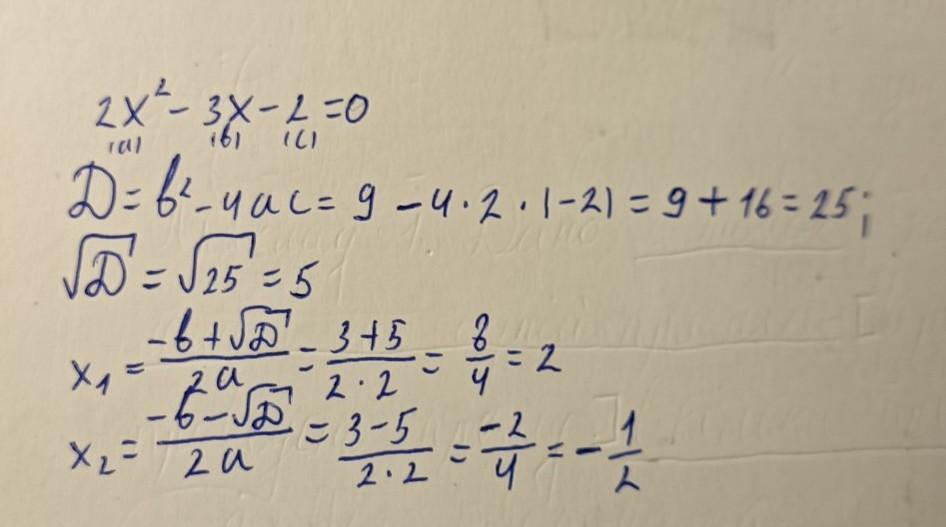 2x² - 3x - 2 = 0
(a) (b) (c)
D = b² - 4ac = 9 - 4 · 2 · (-2) = 9 + 16 = 25;
√D = √25 = 5
x₁ = (-b + √D)/(2a) = (3 + 5)/(2 · 2) = 8/4 = 2
x₂ = (-b - √D)/(2a) = (3 - 5)/(2 · 2) = -2/4 = -1/2